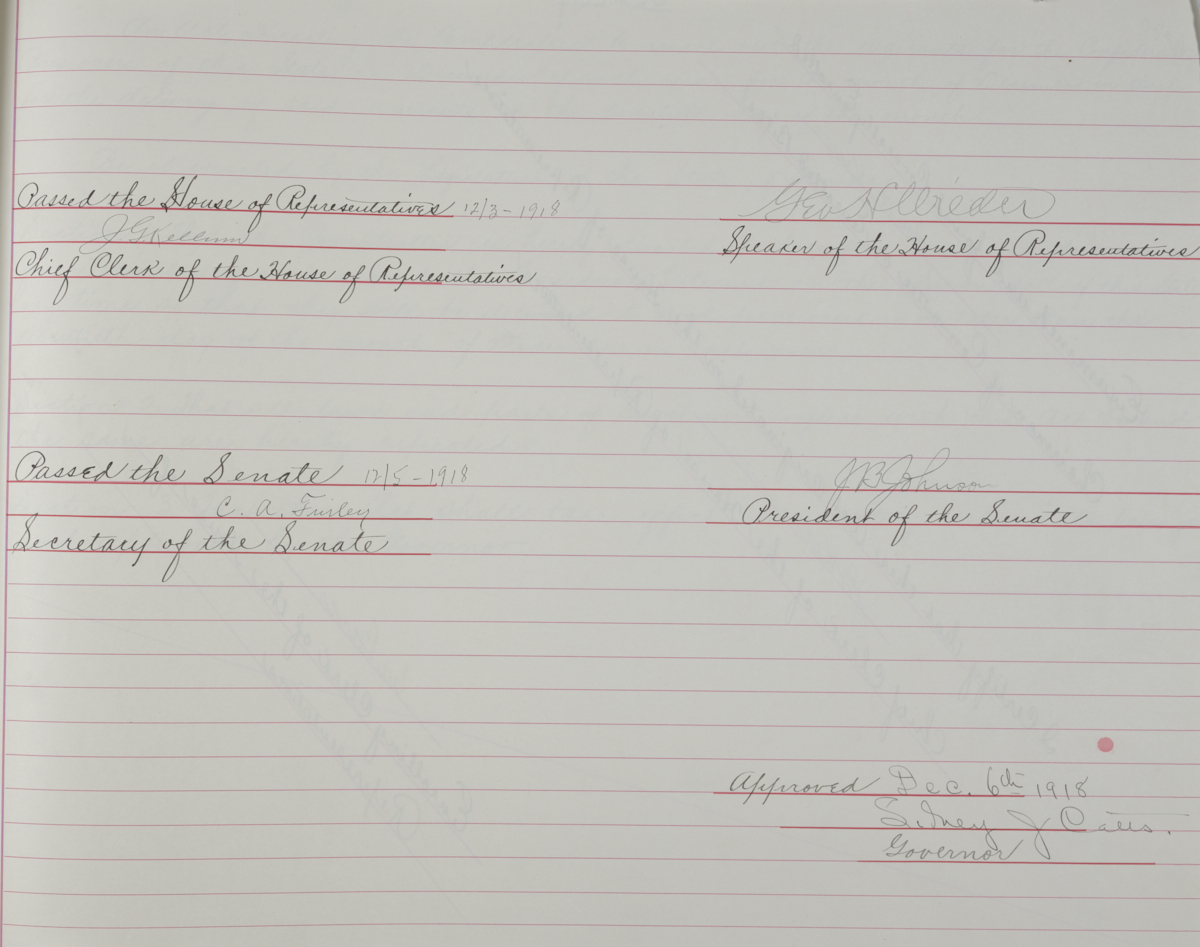 Passed the House of Representatives 12/3-1918
J G Kellum
Chief Clerk of the House of Representatives
Geo H Wilder
Speaker of the House of Representatives
Passed the Senate 12/5-1918
C. A. Finley
Secretary of the Senate
J B Johnson
President of the Senate
Approved Dec. 6th 1918
Sidney J Catts.
Governor